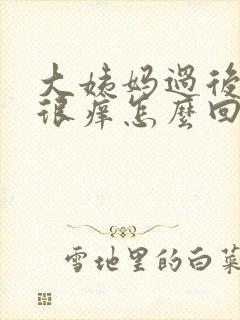 大姨妈過後
很痒怎麼回
雪地里的白菜